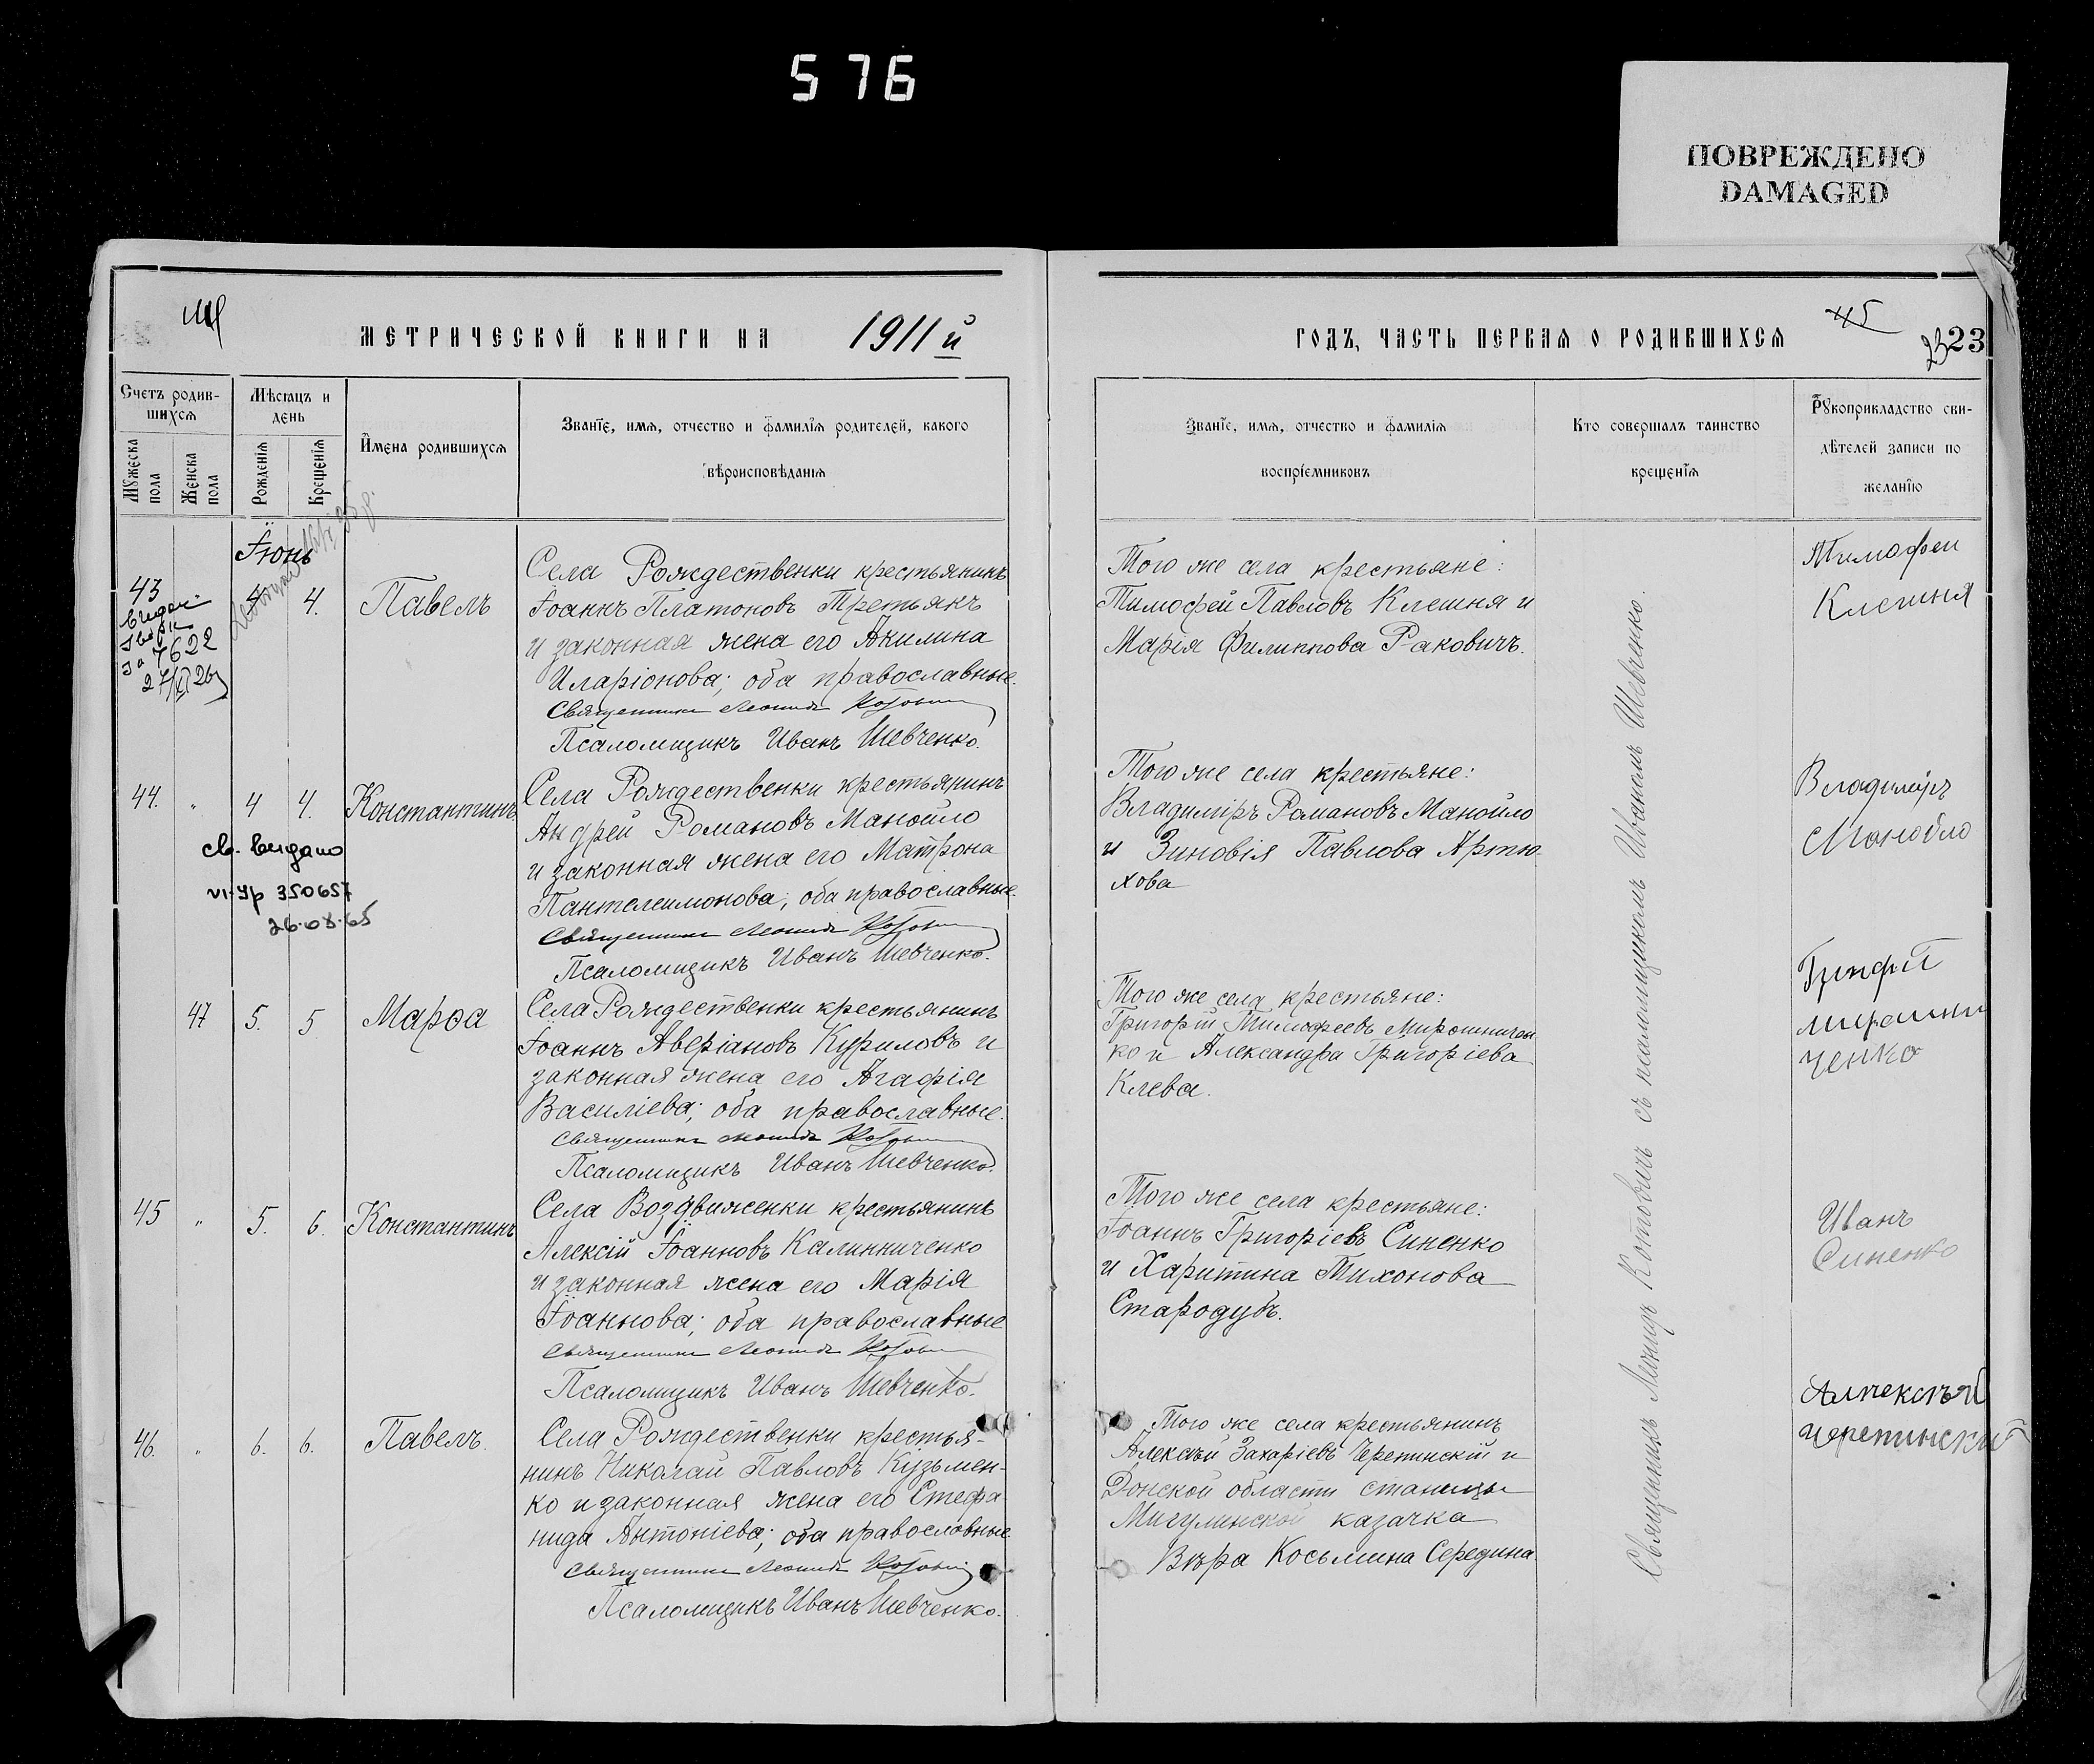 576
ПОВРЕЖДЕНО
DAMAGED
МЕТРИЧЕСКОЙ КНИГИ НА 1911й
ГОДЪ, ЧАСТЬ ПЕРВАЯ О РОДИВШИХСЯ
45
23 23
Счетъ родив-
шихся
Мѣсяцъ и
день
Мужеска
пола
Женска
пола
Рожденія
Крещенія
Имена родившихся
Званіе, имя, отчество и фамилія родителей, какого
вѣроисповѣданія
Званіе, имя, отчество и фамилія
воспріемниковъ
Кто совершалъ таинство
крещенія
Рукоприкладство сви-
дѣтелей записи по
желанію
Іюнь
43
4 4. Павелъ
7622
Села Рождественки крестьянинъ
Іоаннъ Платоновъ Третьякъ
и законная жена его Акилина
Иларіонова; оба православные.
Священникъ Леонидъ Котовичъ
Псаломщикъ Иванъ Шевченко.
Того же села крестьяне:
Тимофей Павловъ Клешня и
Марія Филиппова Раковичъ.
Тимофеи
Клешня
44. " 4 4. Константинъ
св. видано
VI-УР 350657
26.08.65
Села Рождественки крестьянинъ
Андрей Романовъ Манойло
и законная жена его Матрона
Пантелеимонова; оба православные.
Священникъ Леонидъ Котовичъ
Псаломщикъ Иванъ Шевченко.
Того же села крестьяне:
Владиміръ Романовъ Манойло
и Зиновія Павлова Артю-
хова
Владиміръ
Манойло
47 5. 5 Марѳа
Села Рождественки крестьянинъ
Іоаннъ Аверіановъ Куриловъ и
законная жена его Агафія
Василіева; оба православные.
Священникъ Леонидъ Котовичъ
Псаломщикъ Иванъ Шевченко.
Того же села крестьяне:
Григорій Тимофеевъ Мирошничен
ко и Александра Григоріева
Клева.
мирошни
ченко
45 " 5. 6. Константинъ
Села Воздвиженки крестьянинъ
Алексій Іоанновъ Калинниченко
и законная жена его Марія
Іоаннова; оба православные
Священникъ Леонидъ Котовичъ
Псаломщикъ Иванъ Шевченко.
Того же села крестьяне:
Іоаннъ Григоріевъ Синенко
и Харитина Тихонова
Стародубъ.
Иванъ
Синенко
46. " 6. 6. Павелъ.
Села Рождественки крестья-
нинъ Николай Павловъ Кузьмен-
ко и законная жена его Стефа
нида Антоніева; оба православные.
Священникъ Леонидъ Котовичъ
Псаломщикъ Иванъ Шевченко.
Того же села крестьянинъ
Алексѣй Захаріевъ Черепинскій и
Донской области станицы
Мигулинской казачка
Вѣра Косьмина Середина.
черепинский
Священникъ Леонидъ Котовичъ съ псаломщикомъ Иваномъ Шевченко.